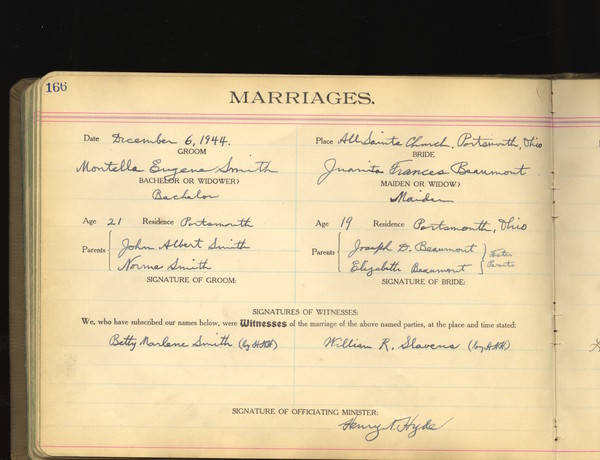 166
MARRIAGES.
Date December 6, 1944. Place All Saints Church, Portsmouth, Ohio
GROOM BRIDE
Montella Eugene Smith Juanita Frances Beaumont
BACHELOR OR WIDOWER? MAIDEN OR WIDOW?
Bachelor Maiden
Age 21 Residence Portsmouth Age 19 Residence Portsmouth, Ohio
Parents John Albert Smith Parents Joseph D. Beaumont Foster
Norma Smith Elizabeth Beaumont Parents
SIGNATURE OF GROOM: SIGNATURE OF BRIDE:
SIGNATURES OF WITNESSES:
We, who have subscribed our names below, were Witnesses of the marriage of the above named parties, at the place and time stated:
Betty Marlene Smith (by HNH) William R. Slavens (by HNH)
SIGNATURE OF OFFICIATING MINISTER:
Henry N. Hyde